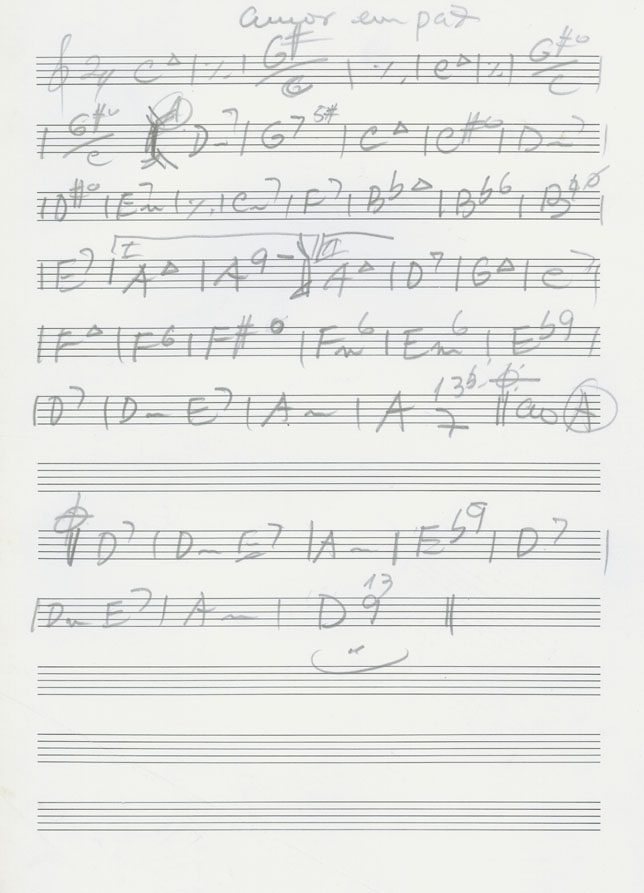 amor em paz
2/4 C△ | ٪ | G#/G | ٪ | C△ | ٪ | G#º/C |
| G#º/C A D-7 | G7 5# | C△ | C#º | D-7 |
| D#º | Em7 | ٪ | Cm7 | F7 | Bb△ | Bb6 | Bbø |
| E7 | I A△ | A9- II A△ | D7 | G△ | C7
| F△ | F6 | F#º | Fm6 | Em6 | Eb9 |
| D7 | D- E7 | A- | A 7 13b ao A
D7 | D- E7 | A- | Eb9 | D7 |
| D- E7 | A- | D 9 13